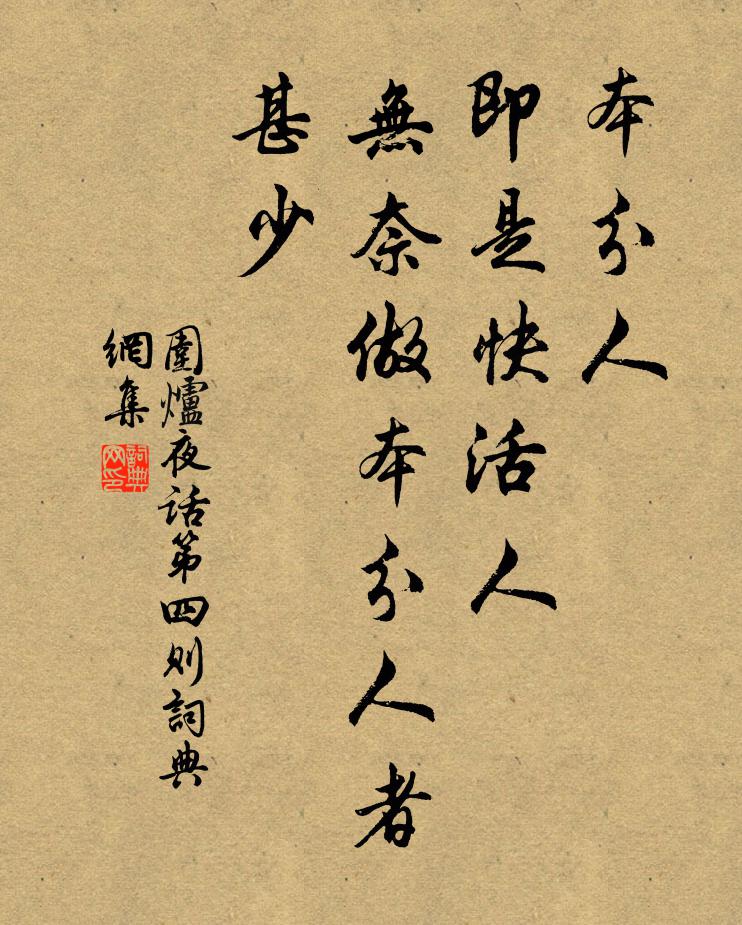 本分人
即是快活人
無奈做本分人者
甚少
圍爐夜话第四则詞典
網集
詞典
网印